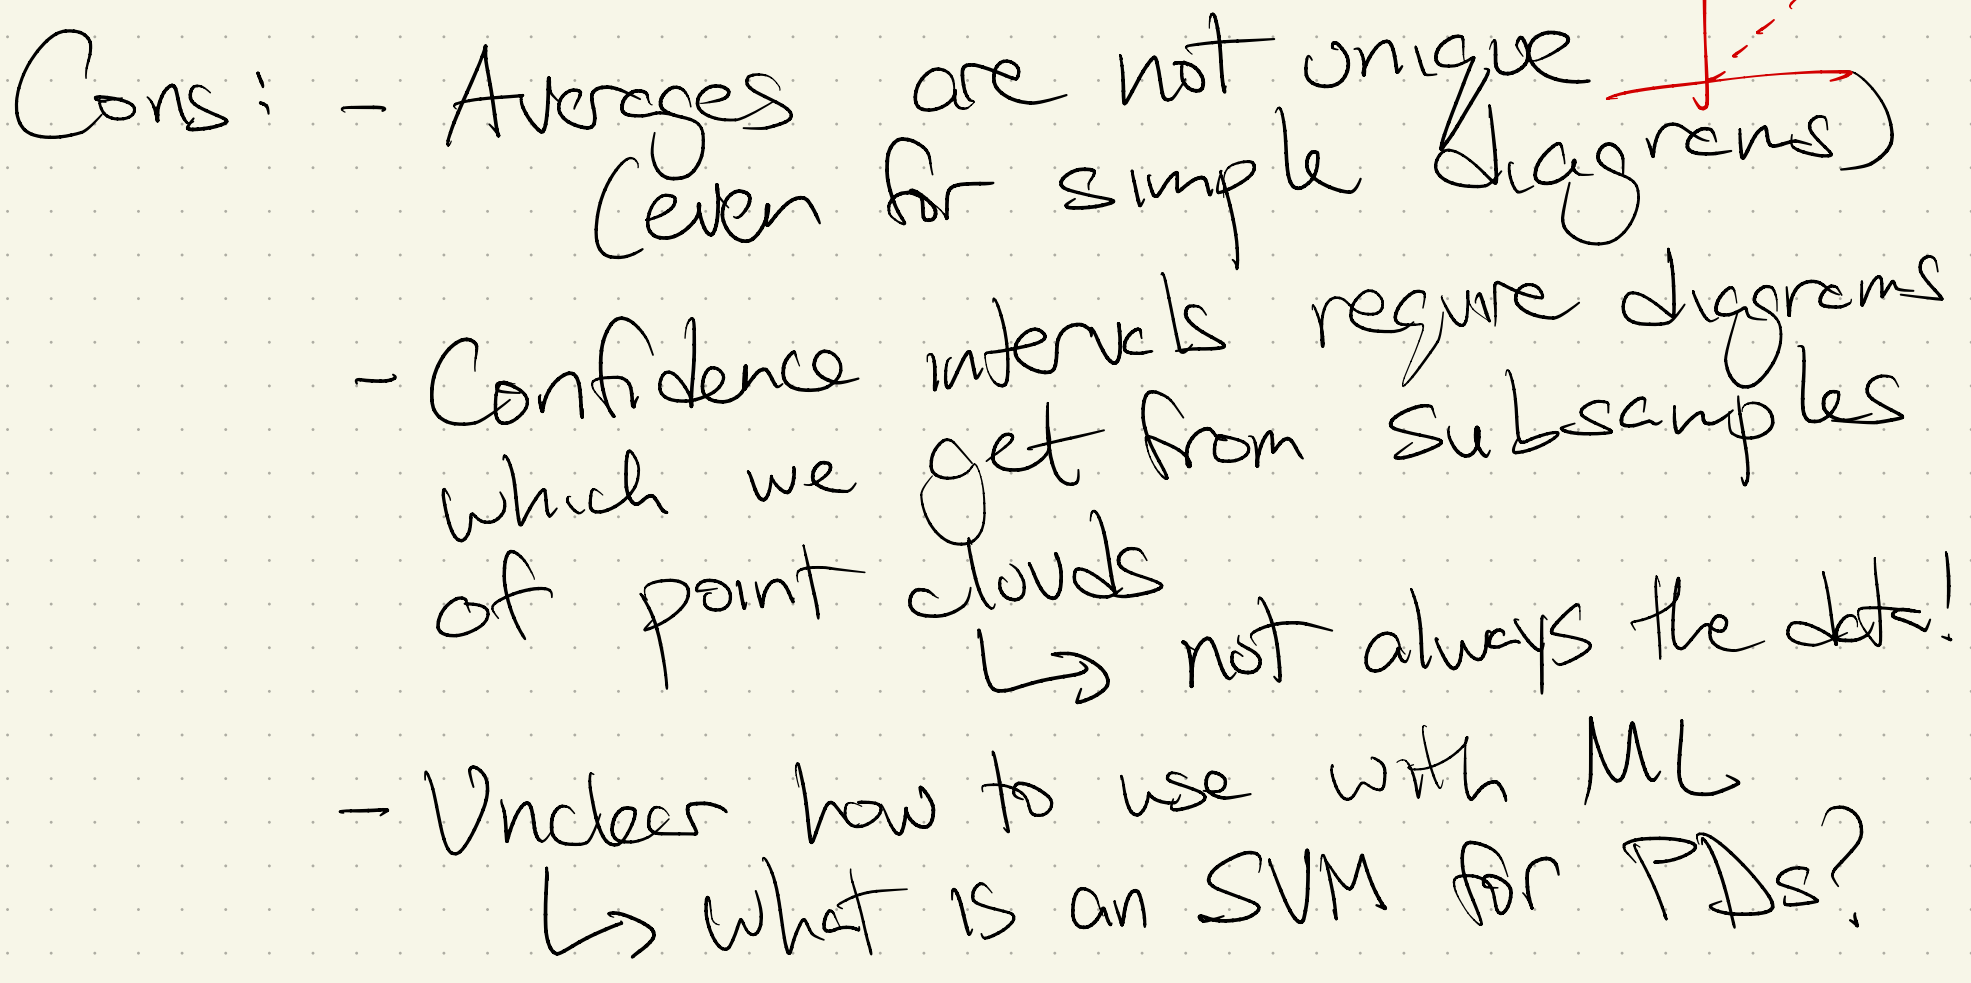 Cons: - Averages are not unique
(even for simple diagrams)
- Confidence intervals require diagrams
which we get from subsamples
of point clouds
↳ not always the data!
- Unclear how to use with ML
↳ what is an SVM for PDs?